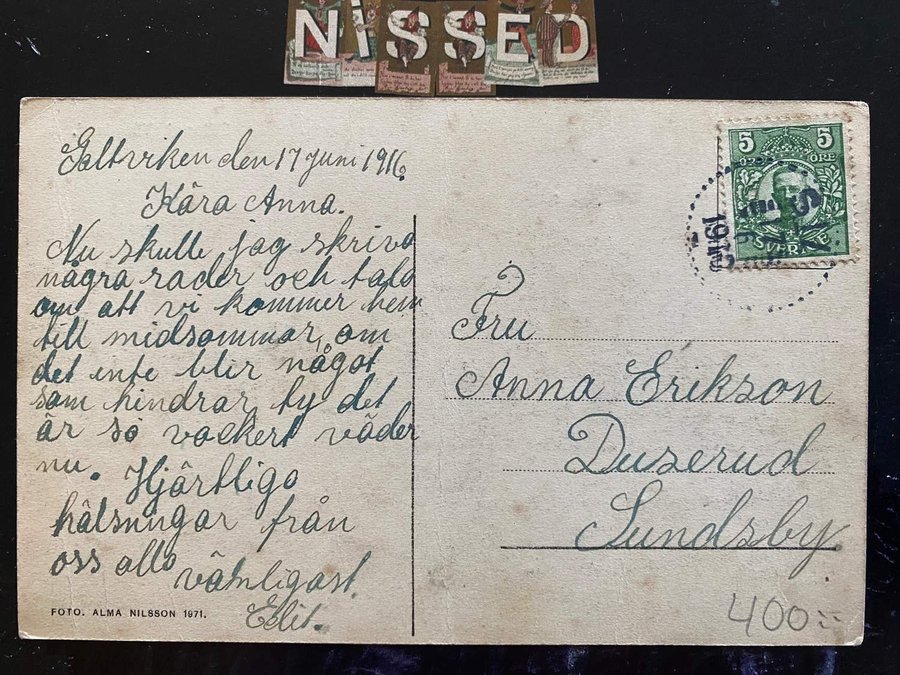 NISSED
Saltviken den 17 juni 1916.
Kära Anna.
Nu skulle jag skriva
några rader och tala
om att vi kommer hem
till midsommar, om
det inte blir något
som hindrar ty det
är så vackert väder
nu. Hjärtliga
hälsningar från
oss alla vänligast.
Edit.
FOTO. ALMA NILSSON 1971.
5 5
ÖRE
SVERIGE
19 6
Fru
Anna Erikson
Duserud
Sundsby
400:-